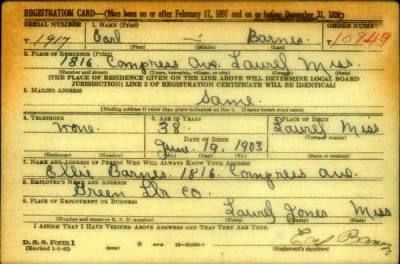 REGISTRATION CARD—(Men born on or after February 17, 1897 and on or before December 31, 1921)
SERIAL NUMBER 1. NAME (Print) ORDER NUMBER
1917 Earl - Barnes 10749
(First) (Middle) (Last)
2. PLACE OF RESIDENCE (Print)
1816. Compress Ave. Laurel Miss.
(Number and street) (Town, township, village, or city) (County) (State)
[THE PLACE OF RESIDENCE GIVEN ON THE LINE ABOVE WILL DETERMINE LOCAL BOARD
JURISDICTION; LINE 2 OF REGISTRATION CERTIFICATE WILL BE IDENTICAL]
3. MAILING ADDRESS
Same.
[Mailing address if other than place indicated on line 2. If same insert word same]
4. TELEPHONE 5. AGE IN YEARS 6. PLACE OF BIRTH
None. 38. Laurel Miss
DATE OF BIRTH (Town or county)
June. 19. 1903
(Exchange) (Number) (Mo.) (Day) (Yr.) (State or country)
7. NAME AND ADDRESS OF PERSON WHO WILL ALWAYS KNOW YOUR ADDRESS
Ellie Barnes. 1816. Compress Ave.
8. EMPLOYER'S NAME AND ADDRESS
Green Lbr Co.
9. PLACE OF EMPLOYMENT OR BUSINESS
Laurel Jones Miss
(Number and street or R. F. D. number) (Town) (County) (State)
I AFFIRM THAT I HAVE VERIFIED ABOVE ANSWERS AND THAT THEY ARE TRUE.
D. S. S. Form 1
(Revised 1-1-42) (over) Earl Barnes
(Registrant's signature)